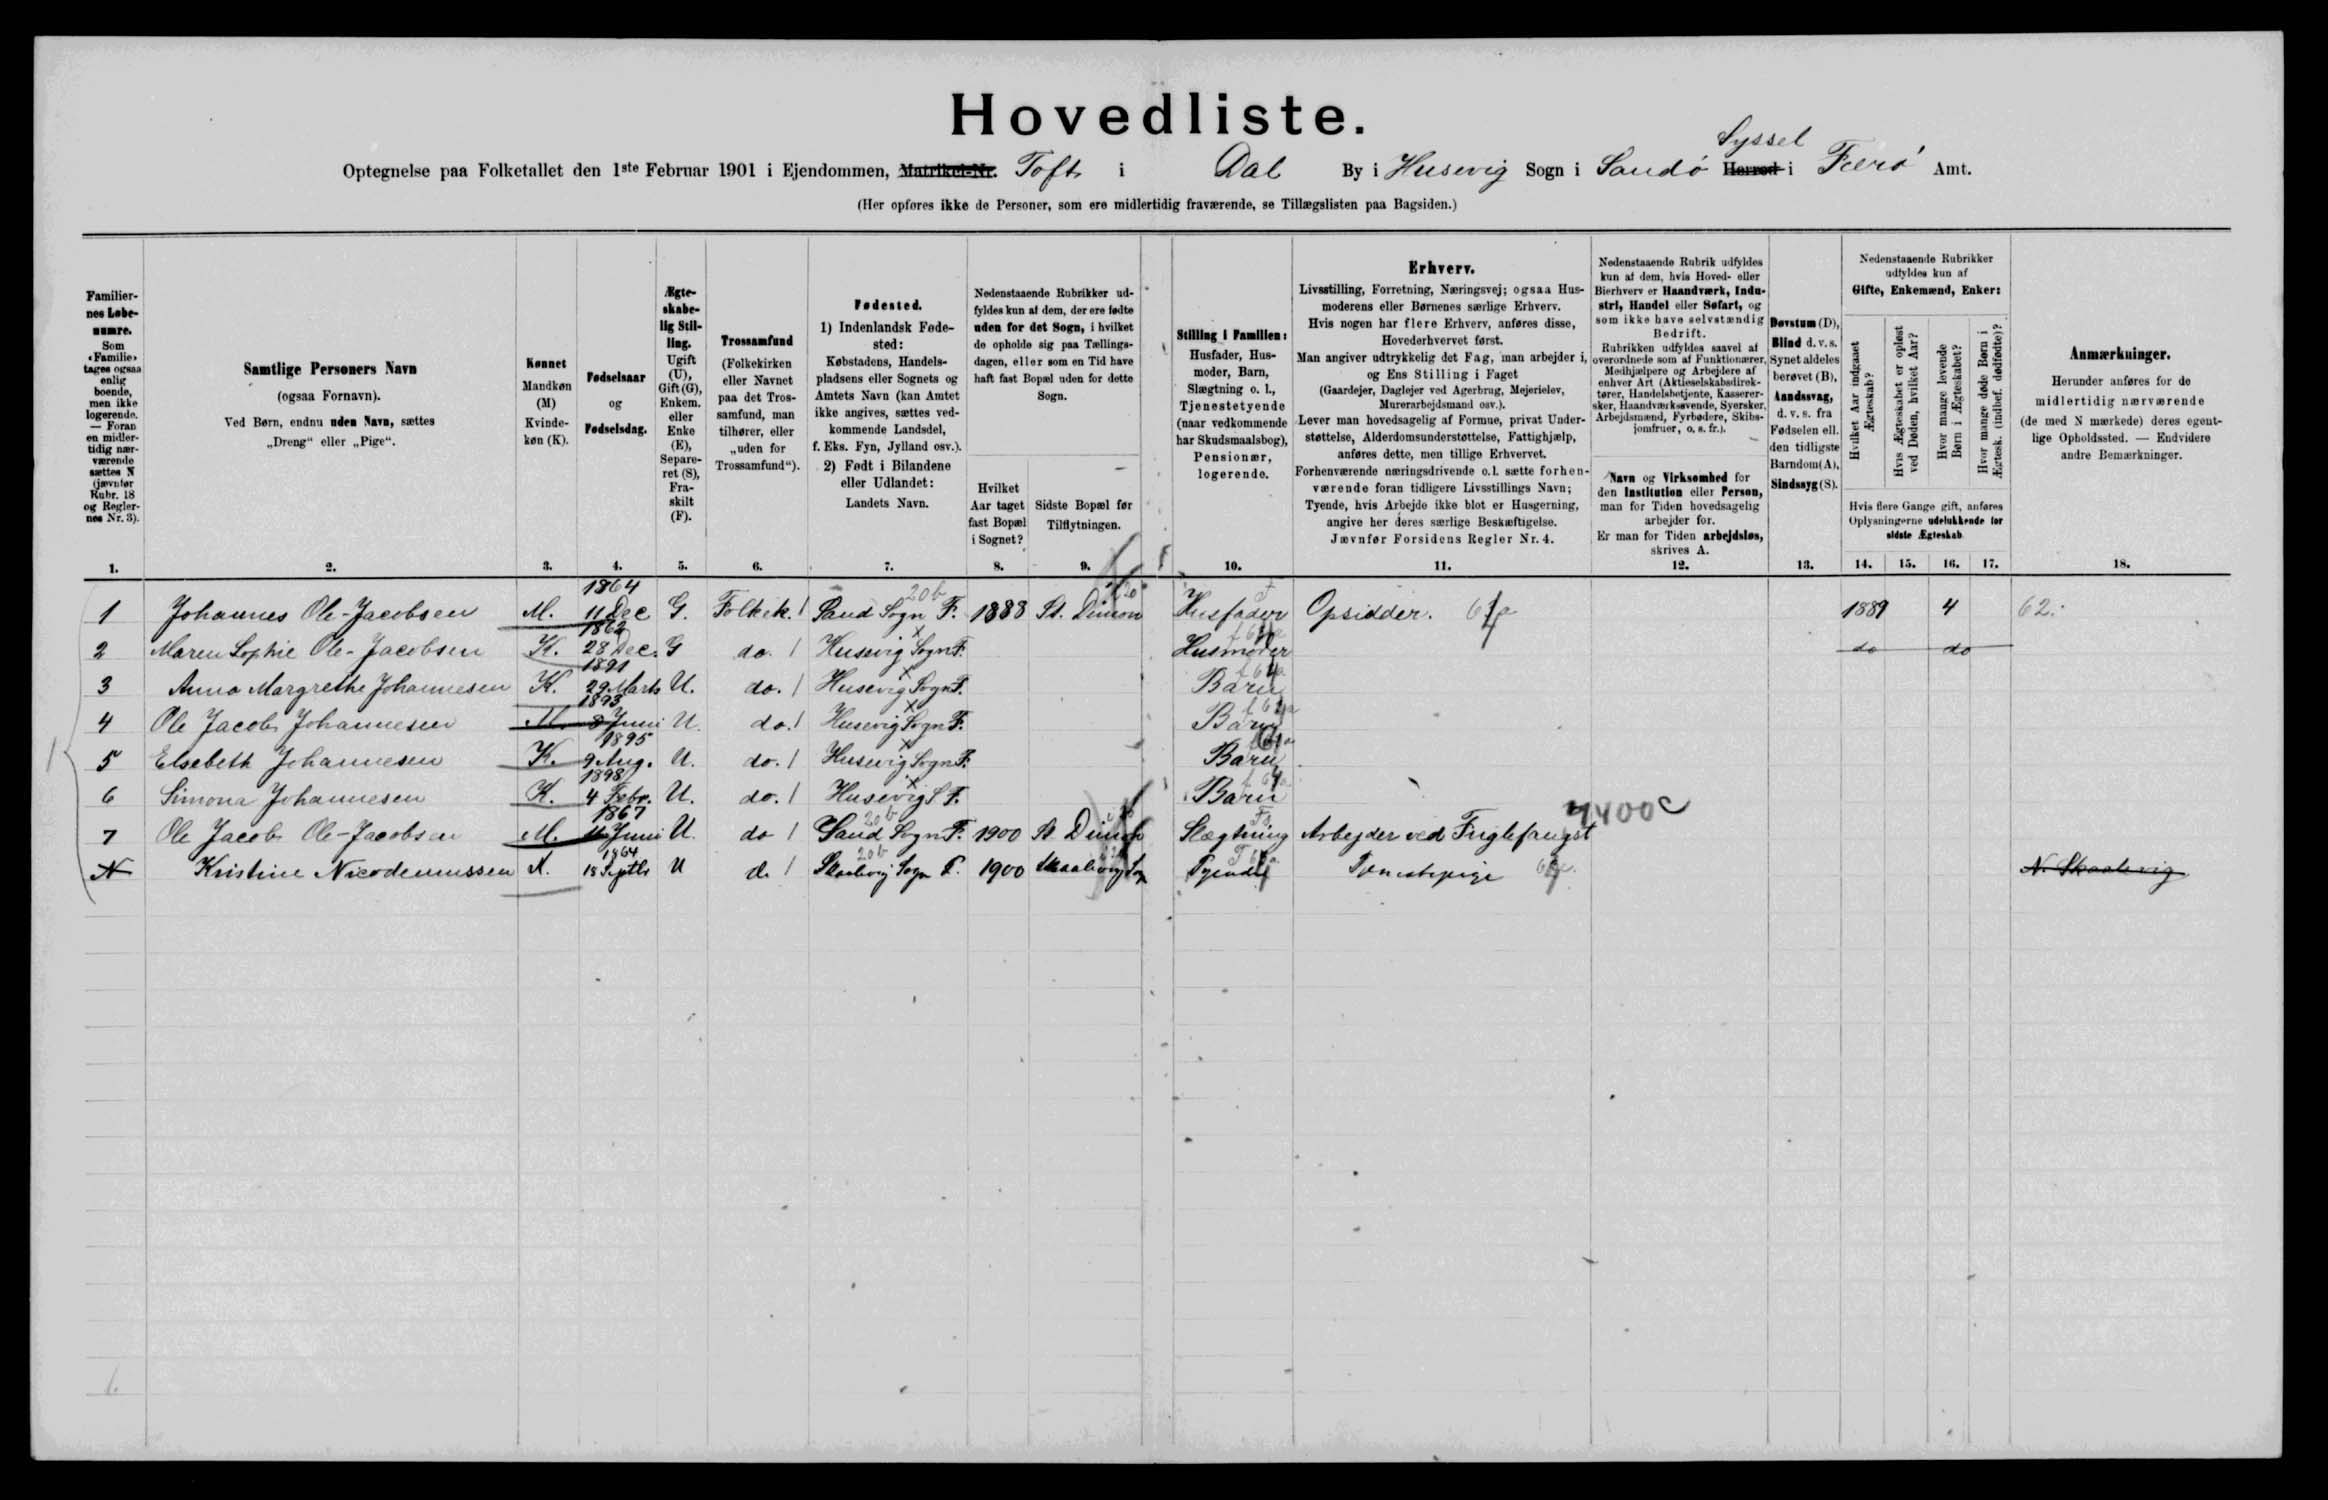 Hovedliste.
Syssel
Optegnelse paa Folketallet den 1ste Februar 1901 i Ejendommen, Matrikel-Nr. Toft i Dal By i Husevig Sogn i Sandö Herred i Færö Amt.
(Her opføres ikke de Personer, som ere midlertidig fraværende, se Tillægslisten paa Bagsiden.)
Familiernes Løbenumre.
Som «Familie» tages ogsaa enlig boende, men ikke logerende. — Foran en midlertidig nærværende sættes N (jævnfør Rubr. 18 og Reglernes Nr. 3).
Samtlige Personers Navn
(ogsaa Fornavn).
Ved Børn, endnu uden Navn, sættes
„Dreng“ eller „Pige“.
Kønnet
Mandkøn (M)
Kvindekøn (K).
Fødselsaar
og
Fødselsdag.
Ægteskabelig Stilling.
Ugift (U), Gift (G), Enkem. eller Enke (E), Separeret (S), Fraskilt (F).
Trossamfund
(Folkekirken eller Navnet paa det Trossamfund, man tilhører, eller „uden for Trossamfund“).
Fødested.
1) Indenlandsk Fødested:
Købstadens, Handelspladsens eller Sognets og Amtets Navn (kan Amtet ikke angives, sættes vedkommende Landsdel, f. Eks. Fyn, Jylland osv.).
2) Født i Bilandene eller Udlandet:
Landets Navn.
Nedenstaaende Rubrikker udfyldes kun af dem, der ere fødte uden for det Sogn, i hvilket de opholde sig paa Tællingsdagen, eller som en Tid have haft fast Bopæl uden for dette Sogn.
Hvilket Aar taget fast Bopæl i Sognet?
Sidste Bopæl før Tilflytningen.
Stilling i Familien:
Husfader, Husmoder, Barn, Slægtning o. l., Tjenestetyende (naar vedkommende har Skudsmaalsbog), Pensionær, logerende.
Erhverv.
Livsstilling, Forretning, Næringsvej; ogsaa Husmoderens eller Børnenes særlige Erhverv.
Hvis nogen har flere Erhverv, anføres disse, Hovederhvervet først.
Man angiver udtrykkelig det Fag, man arbejder i, og Ens Stilling i Faget
(Gaardejer, Daglejer ved Agerbrug, Mejerielev, Murerarbejdsmand osv.).
Lever man hovedsagelig af Formue, privat Understøttelse, Alderdomsunderstøttelse, Fattighjælp, anføres dette, men tillige Erhvervet.
Forhenværende næringsdrivende o.l. sætte forhenværende foran tidligere Livsstillings Navn;
Tyende, hvis Arbejde ikke blot er Husgerning, angive her deres særlige Beskæftigelse.
Jævnfør Forsidens Regler Nr. 4.
Nedenstaaende Rubrik udfyldes kun af dem, hvis Hoved- eller Bierhverv er Haandværk, Industri, Handel eller Søfart, og som ikke have selvstændig Bedrift.
Rubrikken udfyldes saavel af overordnede som af Funktionærer, Medhjælpere og Arbejdere af enhver Art (Aktieselskabsdirektører, Handelsbetjente, Kasserersker, Haandværkssvende, Syersker, Arbejdsmænd, Fyrbødere, Skibsjomfruer, o. s. fr.).
Navn og Virksomhed for den Institution eller Person, man for Tiden hovedsagelig arbejder for.
Er man for Tiden arbejdsløs, skrives A.
Døvstum (D), Blind d. v. s. Synet aldeles berøvet (B), Aandssvag, d. v. s. fra Fødselen ell. den tidligste Barndom (A), Sindssyg (S).
Nedenstaaende Rubrikker udfyldes kun af
Gifte, Enkemænd, Enker:
Hvilket Aar indgaaet Ægteskab?
Hvis Ægteskabet er opløst ved Døden, hvilket Aar?
Hvor mange levende Børn i Ægteskabet?
Hvor mange døde Børn i Ægtesk. (indbef. dødfødte)?
Hvis flere Gange gift, anføres Oplysningerne udelukkende for sidste Ægteskab
Anmærkninger.
Herunder anføres for de midlertidig nærværende (de med N mærkede) deres egentlige Opholdssted. — Endvidere andre Bemærkninger.
1. 2. 3. 4. 5. 6. 7. 8. 9. 10. 11. 12. 13. 14. 15. 16. 17. 18.
1 Johannes Ole-Jacobsen M. 1864 11 Dec G. Folkek. Sand Sogn F. 1888 St. Dimon Husfader Opsidder. 1889 4 62.
2 Maren Sophie Ole-Jacobsen K. 1862 28 Dec. G do. Husevig Sogn F. Husmoder do do
3 Anna Margrethe Johannesen K. 1891 29 Marts U. do. Husevig Sogn F. Barn
4 Ole Jacob Johannesen M. 1893 8 Juni U do. Husevig Sogn F. Barn
5 Elsebeth Johannesen K. 1895 9 Aug. U. do. Husevig Sogn F. Barn
6 Simona Johannesen K. 1898 4 Febr. U. do. Husevig S F. Barn
7 Ole Jacob Ole-Jacobsen M. 1867 Juni U. do Sand Sogn F. 1900 St Dimon Slægtning Arbejder ved Fuglefangst 7400c
N Kristine Nicodemussen K. 1864 18 Septb U d. Skaalevig Sogn F. 1900 Skaalevig Sogn Tyende Tjenestepige N. Skaalevig